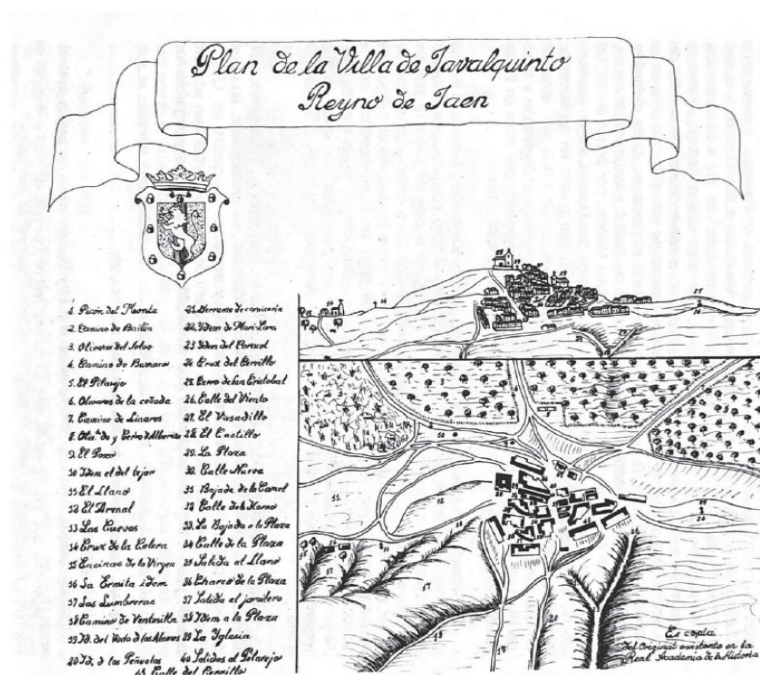 Plan de la Villa de Javalquinto
Reyno de Jaen
1. Picón del Monte
2. Camino de Bailén
3. Olivares del Soto
4. Camino de
5. El Pilarejo
6. Olivares de la cañada
7. Camino de Linares
8. y
9. El Pozo
10 Idem el del tejar
11 El Llano
12 El Arenal
13 Las Cuevas
14 Cruz de la
15 Encinas de la Virgen
16 La Ermita idem
17 Las Lumbreras
18 Camino de Ventosilla
19 Id. del Vado
20 Id. d las Peñuelas
21 de carnicería
22 Idem de Mari-Lara
23 Idem del
24 Cruz del Cerrillo
25 Cerro de San Cristobal
26 Calle del Viento
27. El Vasadillo
28 El Castillo
29. La Plaza
30. Calle Nueva
31 Bajada de la Carcel
32 Calle del
33. La Bajada a la Plaza
34 Calle de la Plaza
35 Salida al Llano
36 Charco de la Plaza
37 Salida el
38 Idem a la Plaza
39 La Iglesia
40 Salidas al Pilarejo
Calle del Cerrillo
Es copia
del original existente en la
Real Academia de la Historia